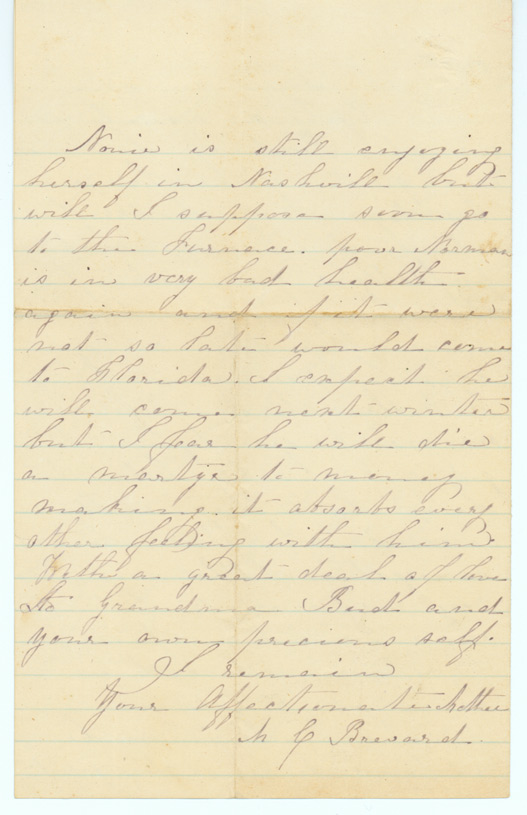 Nonie is still enjoying
herself in Nashvill but
will I suppose soon go
to the Furnace. poor Norman
is in very bad health
again and if it were
not so late would come
to Florida. I expect he
will come next winter
but I fear he will die
a martyr to money
making. it absorbs every
other feeling with him.
With a great deal of love
to Grandma Bud and
your own precious self.
I remain
Your Affectionate Mother
M C Brevard.